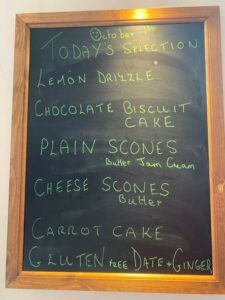 October 1st
TODAY'S SELECTION
LEMON DRIZZLE
CHOCOLATE BISCUIT
CAKE
PLAIN SCONES
Butter Jam Cream
CHEESE SCONES
Butter
CARROT CAKE
GLUTEN FREE DATE + GINGER